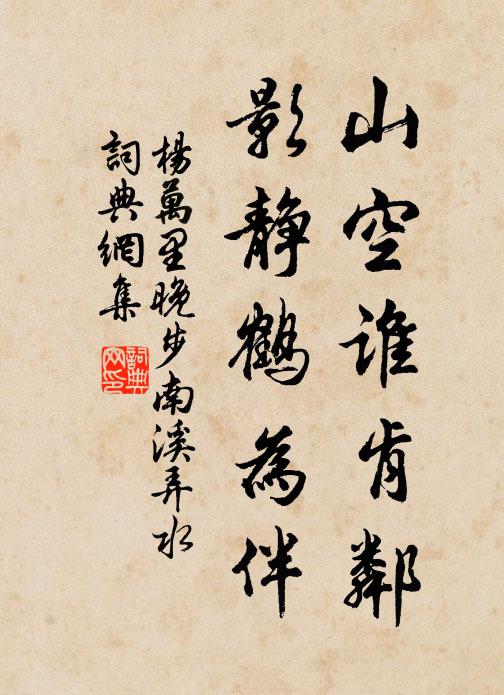 山空谁肯鄰
影静鶴為伴
楊萬里晚步南溪弄水
詞典網集
詞典网印